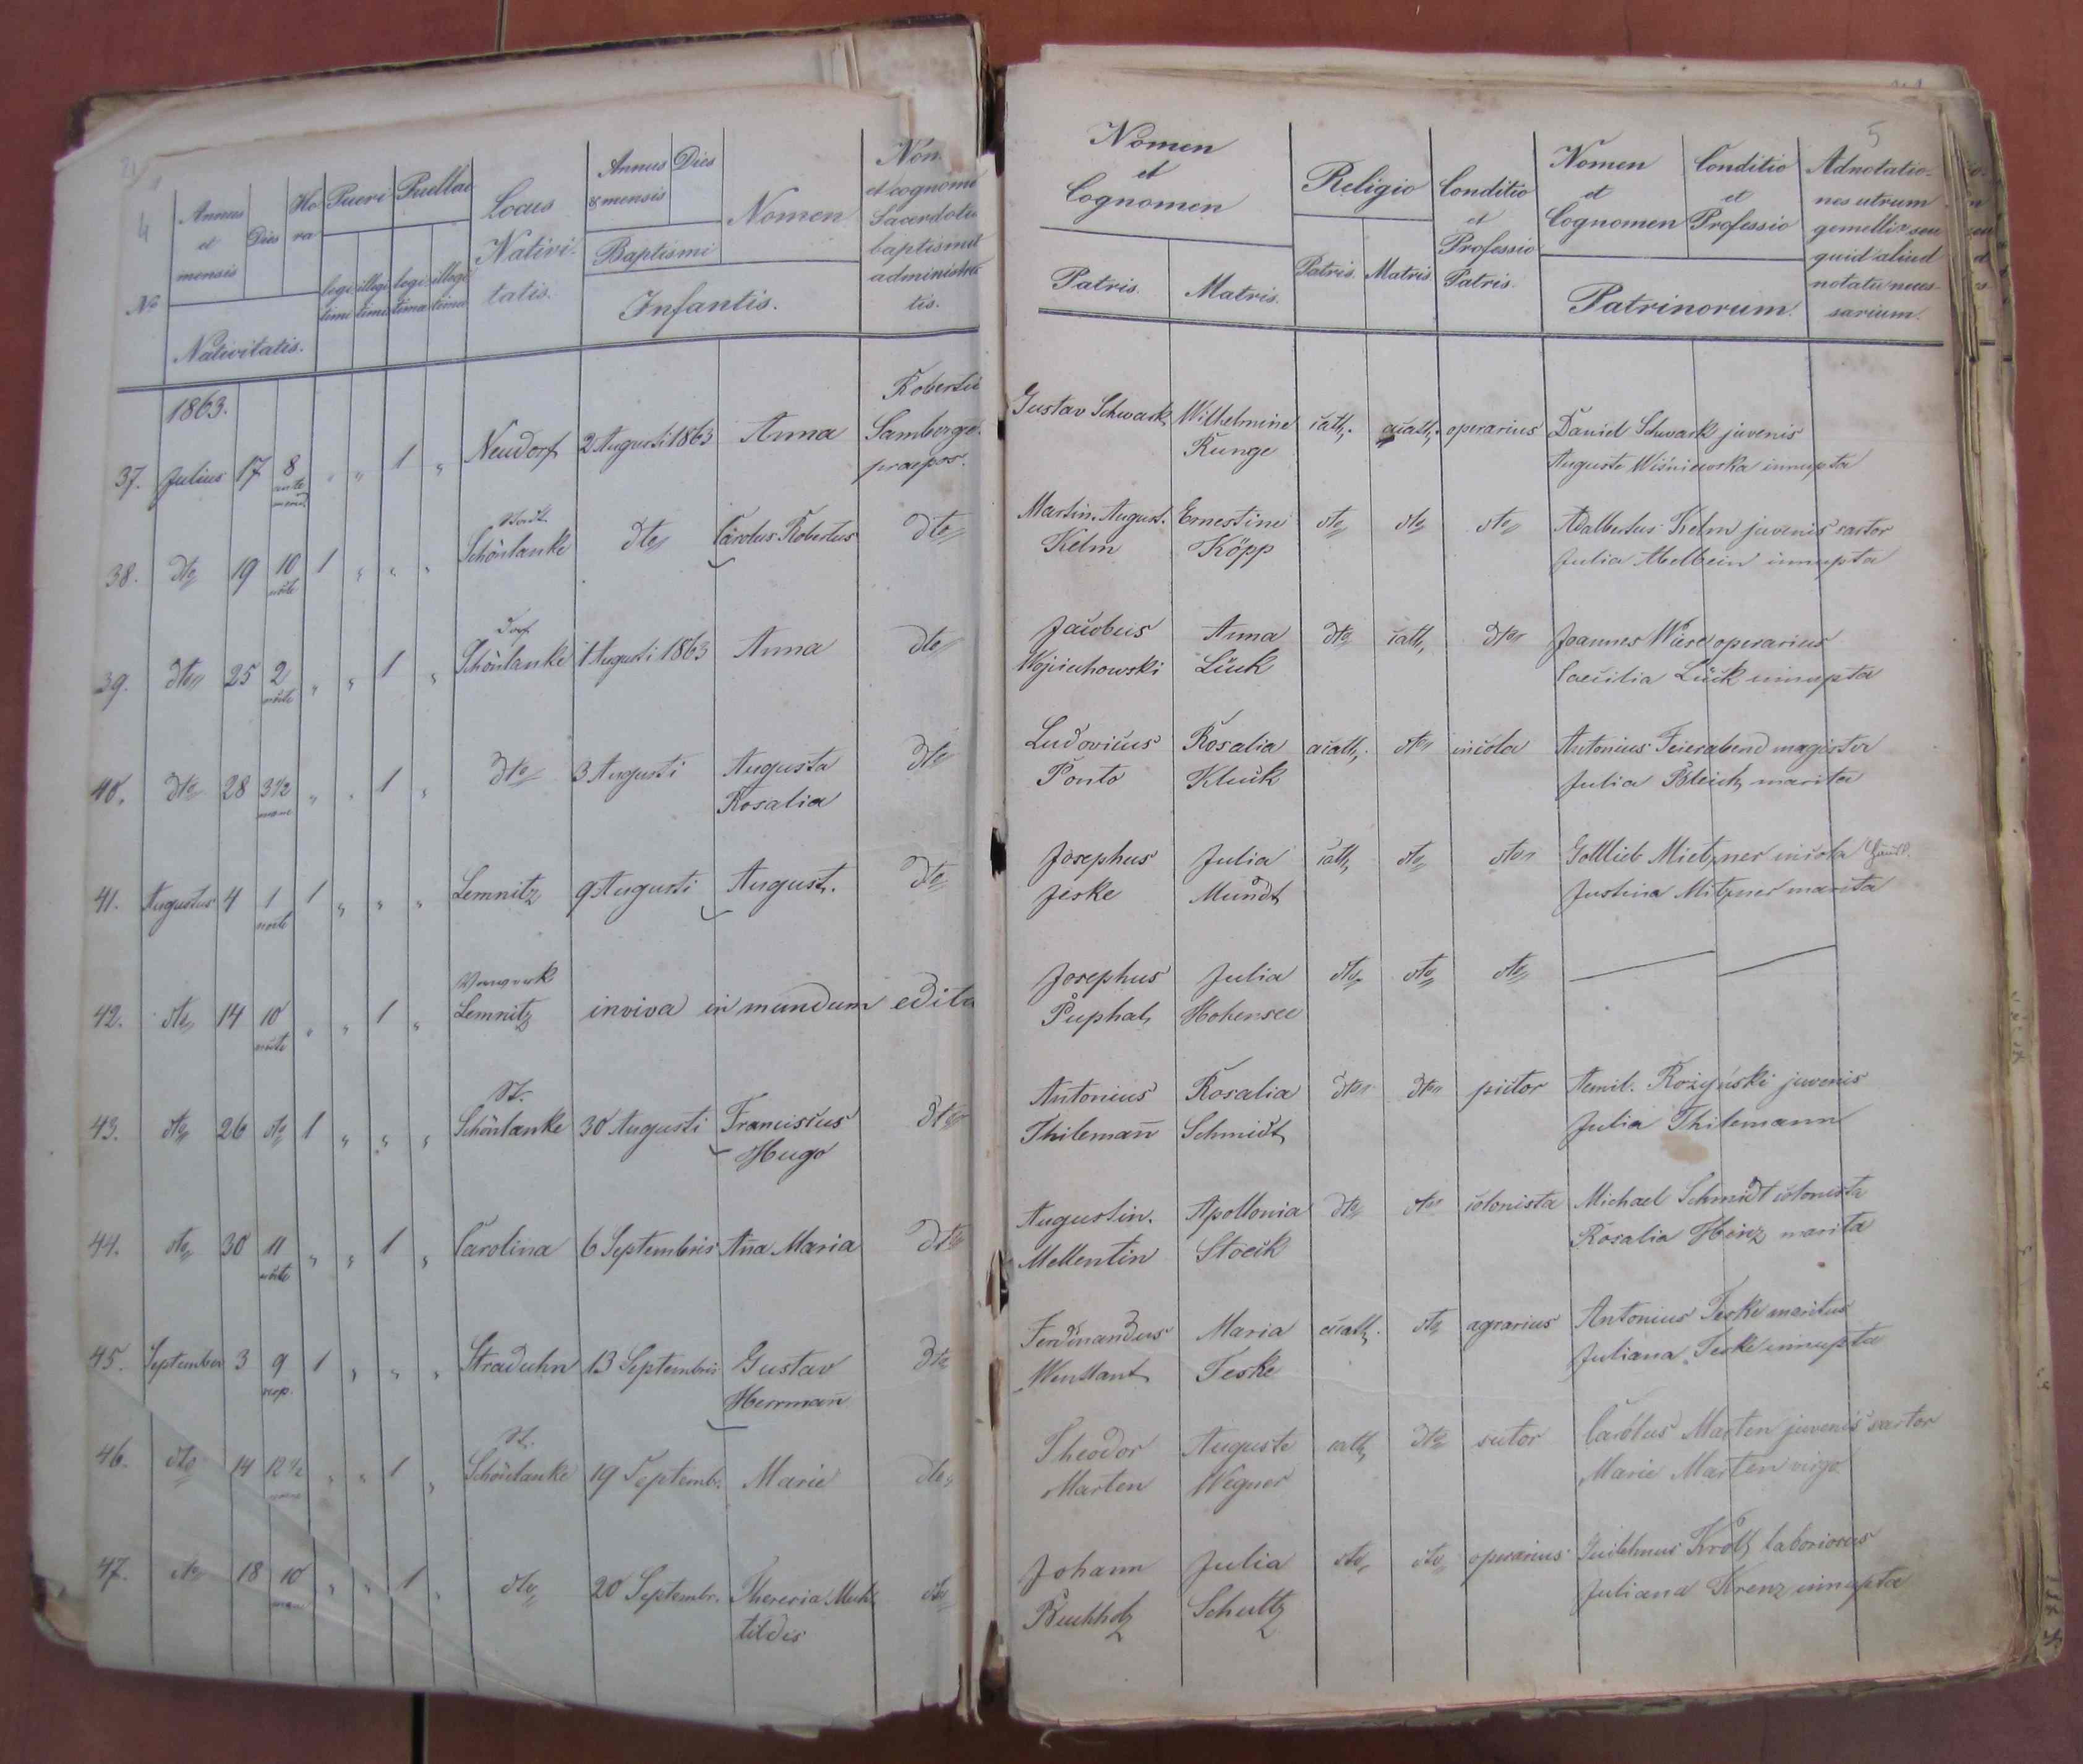 4
No
Annus et mensis
Dies
Hora
Nativitatis.
Pueri
legitimi
illegitimi
Puellae
legitima
illegitima
Locus Nativitatis.
Annus & mensis
Dies
Baptismi
Nomen
Infantis.
Nom. et cognomen Sacerdotis baptismum administrantis.
1863.
37. Julius 17 8 ante merid. " " 1 " Neudorf 2 Augusti 1863 Anna Robertus Samberger praepos.
38. dto 19 10 nocte 1 " " " Stadt Schönlanke dto Carolus Robertus dto
39. dto 25 2 nocte " " 1 " Dorf Schönlanke 1 Augusti 1863 Anna dto
40. dto 28 3 1/2 mane " " 1 " dto 3 Augusti Augusta Rosalia dto
41. Augustus 4 1 nocte 1 " " " Lemnitz 9 Augusti August. dto
42. dto 14 10 nocte " " 1 " Vorwerk Lemnitz inviva in mundum edita
43. dto 26 dto 1 " " " St. Schönlanke 30 Augusti Franciscus Hugo dto
44. dto 30 11 nocte " " 1 " Carolina 6 Septembris Ana Maria dto
45. September 3 9 vesp. 1 " " " Straduhn 13 Septembris Gustav Herrmann dto
46. dto 14 12 1/2 " " 1 " St. Schönlanke 19 Septemb. Marie dto
47. dto 18 10 mane " " 1 " dto 20 Septembr. Theresia Mechtildis dto
5
Nomen et Cognomen
Patris.
Matris.
Religio
Patris.
Matris.
Conditio et Professio Patris.
Nomen et Cognomen
Conditio et Professio
Patrinorum.
Adnotationes utrum gemelli seu quid aliud notatu necessarium.
Gustav Schwark Wilhelmine Runge cath. acath. operarius Daniel Schwark juvenis
Auguste Wiśniewska innupta
Martin. August. Kelm Ernestine Köpp dto dto dto Adalbertus Kelm juvenis sartor
Julia innupta
Jacobus Wojciechowski Anna Lück dto cath. dto Joannes operarius
Caecilia Lück innupta
Ludovicus Ponto Rosalia Kluck acath. dto incola Antonius Feierabend magister
Julia Bleich marita
Josephus Jeske Julia Mundt cath. dto dto Gottlieb Mietzner incola
Justina Mitzner marita
Josephus Puphal Julia Hohensee dto dto dto
Antonius Thilemann Rosalia Schmidt dto dto pictor Aemil. Rożyński juvenis
Julia Thilemann
Augustin. Mellentin Apollonia Stoeck dto dto colonista Michael Schmidt colonista
Rosalia Heinz marita
Ferdinandus Wendlant Maria Teske acath. dto agrarius Antonius Teske maritus
Juliana Teske innupta
Theodor Marten Auguste Wegner cath. dto sutor Carolus Marten juvenis sartor
Marie Marten virgo
Johann Buchholz Julia Schultz dto dto operarius Guilelmus Kroll laboriosus
Juliana Krenz innupta